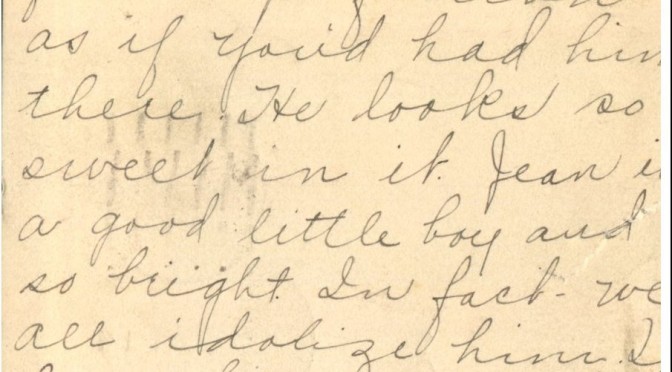 as if you'd had him
there. He looks so
sweet in it. Jean is
a good little boy and
so bright. In fact - we
all idolize him. I